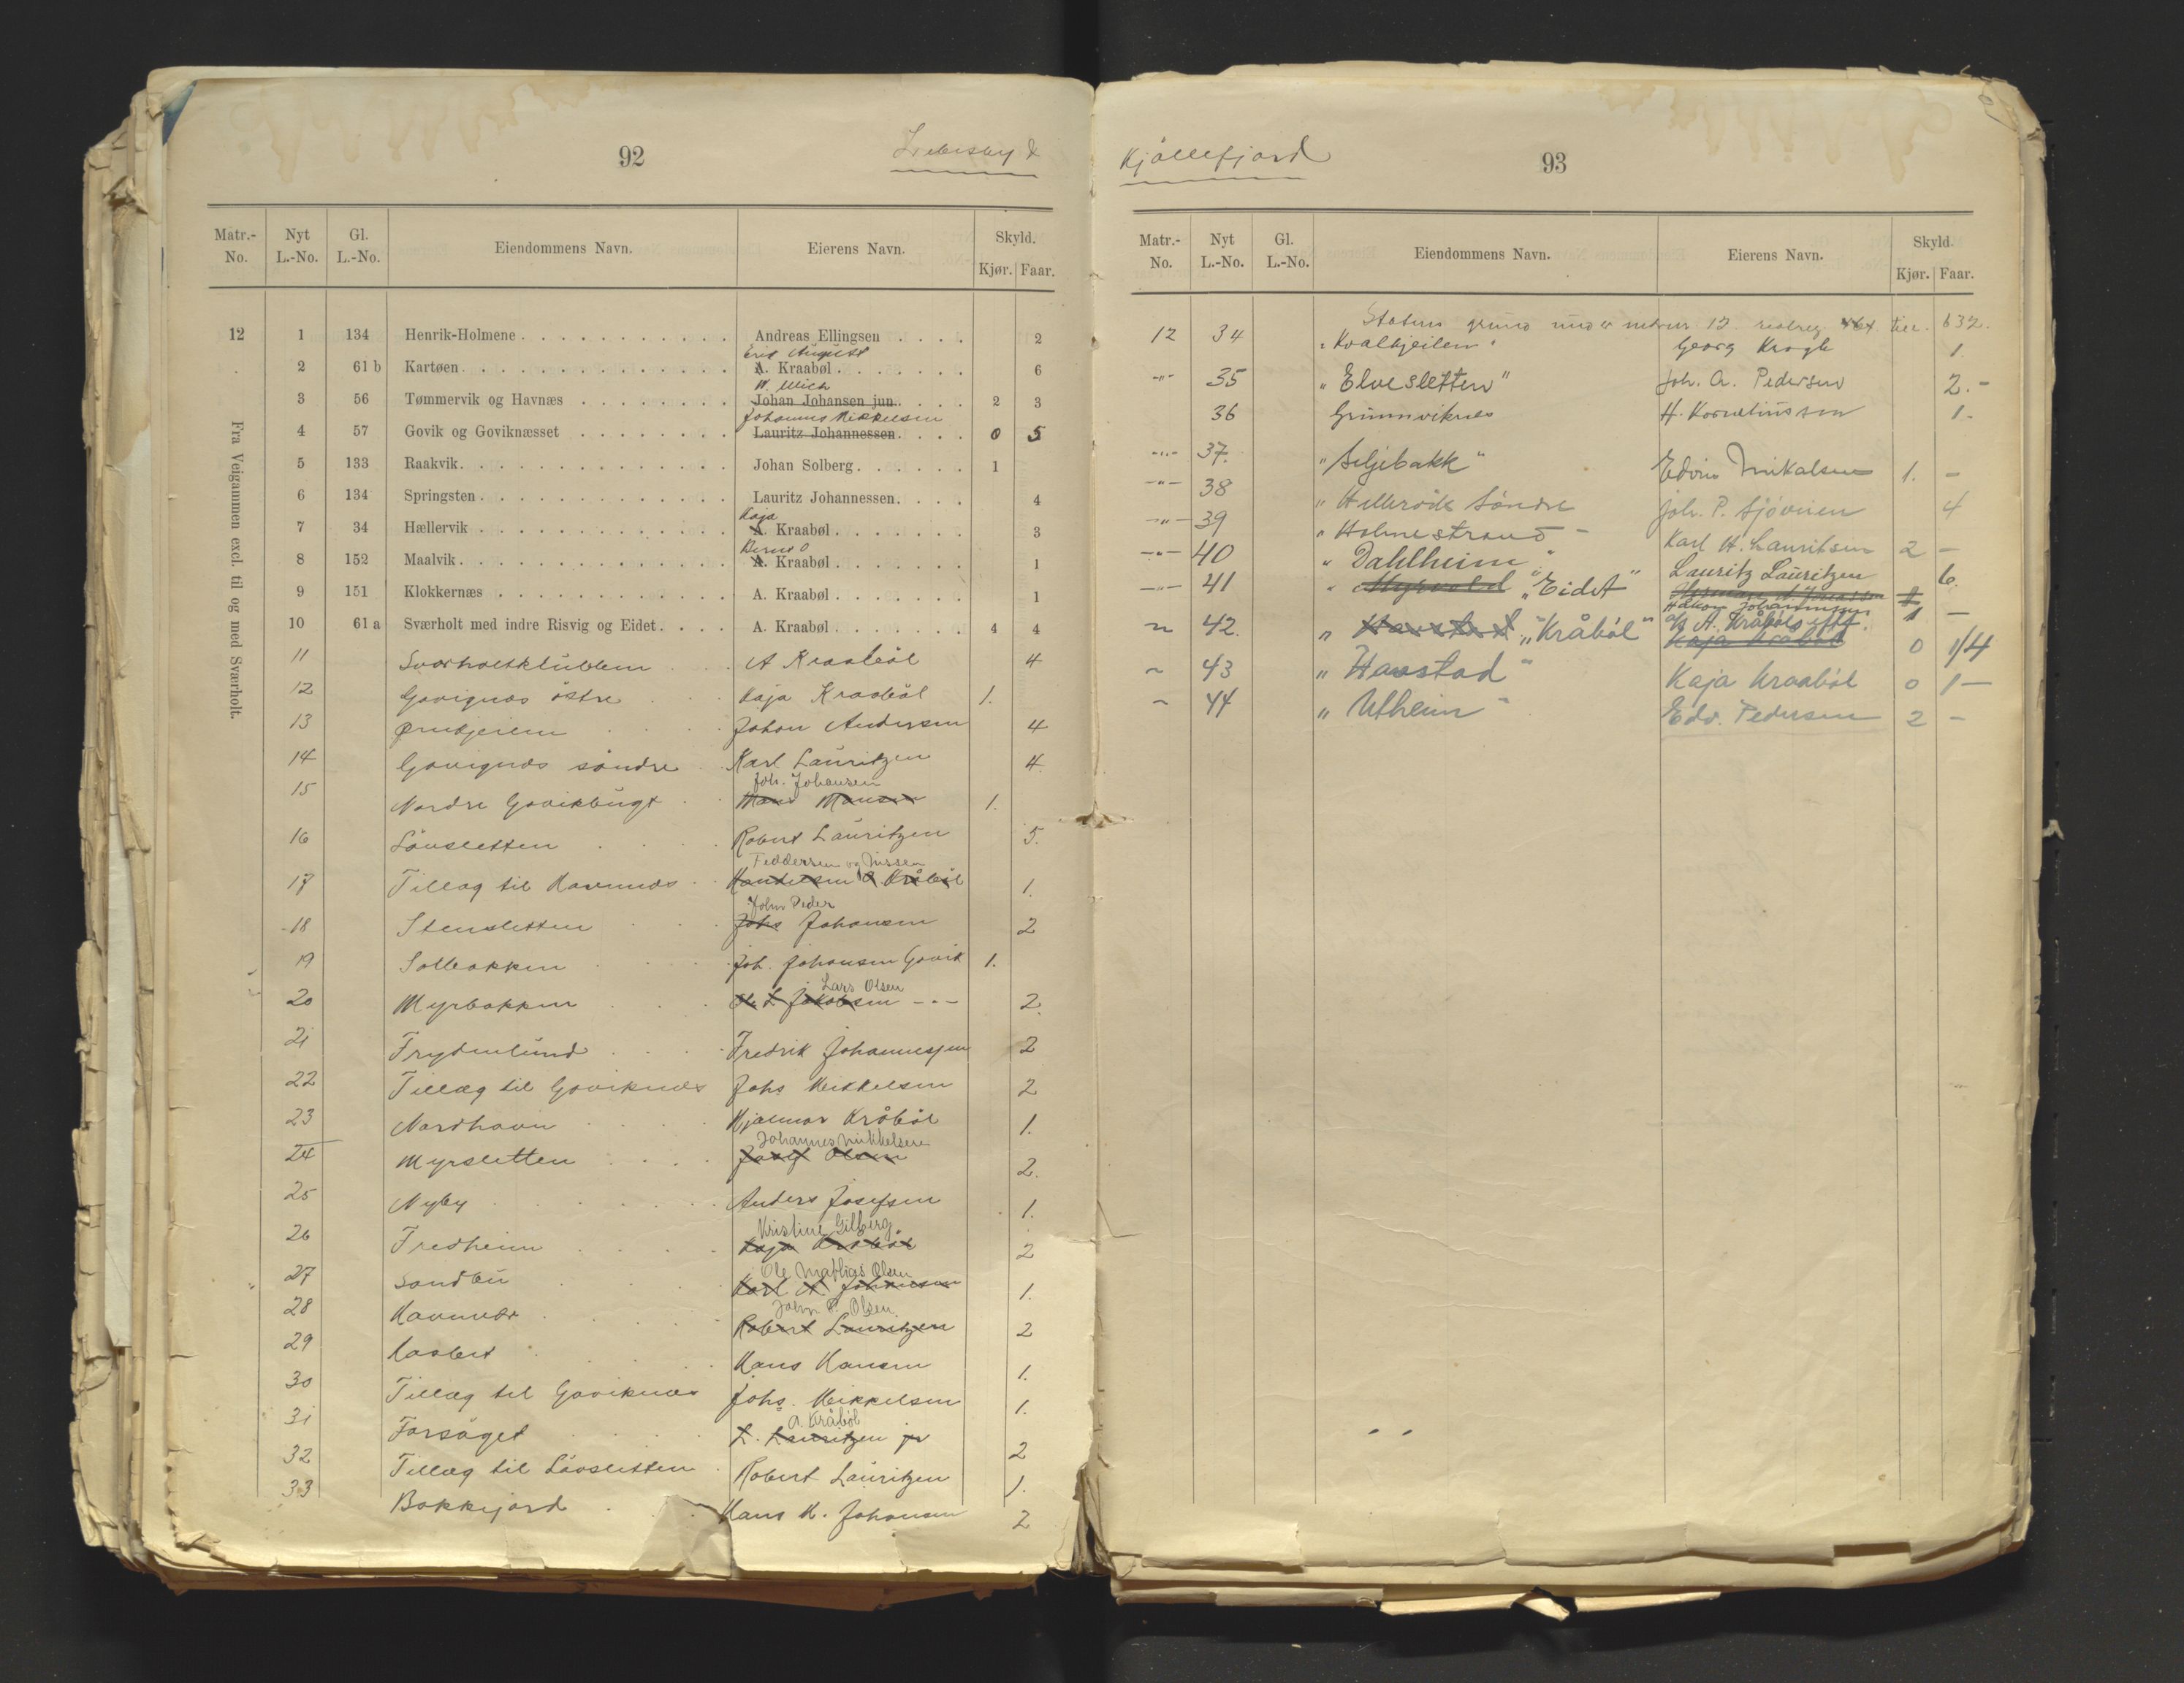 92
Lebesby &
Matr.-No. Nyt L.-No. Gl. L.-No. Eiendommens Navn. Eierens Navn. Skyld. Kjør. Faar.
Fra Veigammen excl. til og med Sværholt.
12 1 134 Henrik-Holmene Andreas Ellingsen 2
Erik August
2 61 b Kartøen A. Kraabøl 6
3 56 Tømmervik og Havnæs Johan Johansen jun. 2 3
Johannes Mikkelsen
4 57 Govik og Goviknæsset Lauritz Johannessen 0 5
5 133 Raakvik Johan Solberg 1
6 134 Springsten Lauritz Johannessen 4
Kaja
7 34 Hællervik A. Kraabøl 3
8 152 Maalvik A. Kraabøl 1
9 151 Klokkernæs A. Kraabøl 1
10 61 a Sværholt med indre Risvig og Eidet A. Kraabøl 4 4
11 Sværholtklubben A Kraabøl 4
12 Govignæs östre Kaja Kraabøl 1.
13 Johan Andersen 4
14 Govignæs söndre Karl Lauritzen 4
Joh. Johansen
15 Nordre Govikbugt Hans Hansen 1.
16 Lövsletten Robert Lauritzen 5.
Feddersen og Nissen
17 Tillæg til Havnnæs Kråböl 1.
John Peder
18 Stensletten Johs Johansen 2
19 Solbakken Joh. Johansen Govik 1.
Lars Olsen
20 Myrbakken Jakobsen 2.
21 Frydenlund Fredrik Johannesen 2
22 Tillæg til Goviknæs Johs Mikkelsen 2
23 Nordhavn Hjalmar Kråböl 1.
Johannes Mikkelsen
24 Myrsletten Josef Olsen 2.
25 Nyby Anders Josefsen 1.
Kristine Gilberg.
26 Fredheim Kaja Kraabøl 2
Ole Mathias Olsen
27 Sandbu Karl A. Johansen 1.
John P. Olsen.
28 Havnnær Robert Lauritzen 2
29 Hans Hansen 1.
30 Tillæg til Goviknæs Johs. Mikkelsen 1.
A. Kråböl
31 Forsöget L. Lauritzen jr 2
32 Tillæg til Lövsletten Robert Lauritzen 1.
33 Bakkejord Hans H. Johansen 2
Kjöllefjord
93
Matr.-No. Nyt L.-No. Gl. L.-No. Eiendommens Navn. Eierens Navn. Skyld. Kjør. Faar.
Statens grund under matr nr 12 632.
12 34 "Kvalkjeilen" Georg Krogh 1.
-"- 35 "Elvesletten" Joh. A. Pedersen 2.-
36 Grunnviknes H. Korneliussen 1.-
-"- 37. "Seljebakk" Edvin Mikalsen 1. -
-"- 38 "Hellevik Søndre Joh. P. Sjövnen 4
-"- 39 "Holmestrand- Karl H. Lauritsen 2 -
-"- 40 "Dahlheim" Lauritz Lauritzen 6.
-"- 41 "Myrvold" "Eidet" Håkon Johannessen 1 -
A/S A. Kråbøls eftf.
~ 42. "Havstad "Kråböl" Kaja Kraböl 0 1/4
~ 43 "Havstad" Kaja Kraabøl 0 1-
~ 44 "Utheim" Edv. Pedersen 2 -